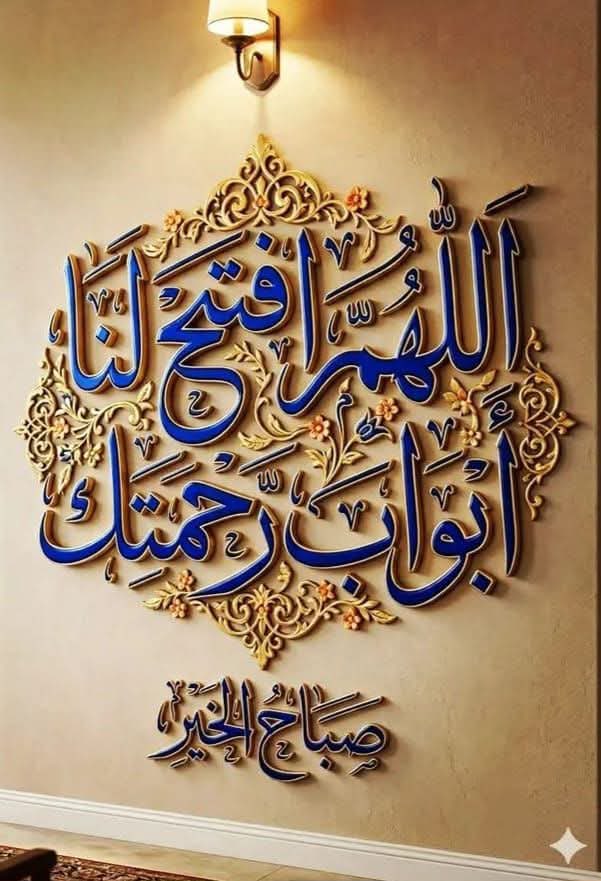 اَللّٰهُمَّ افْتَحْ لَنَا
أَبْوَابَ رَحْمَتِكَ
صَبَاحُ الْخَيْرِ